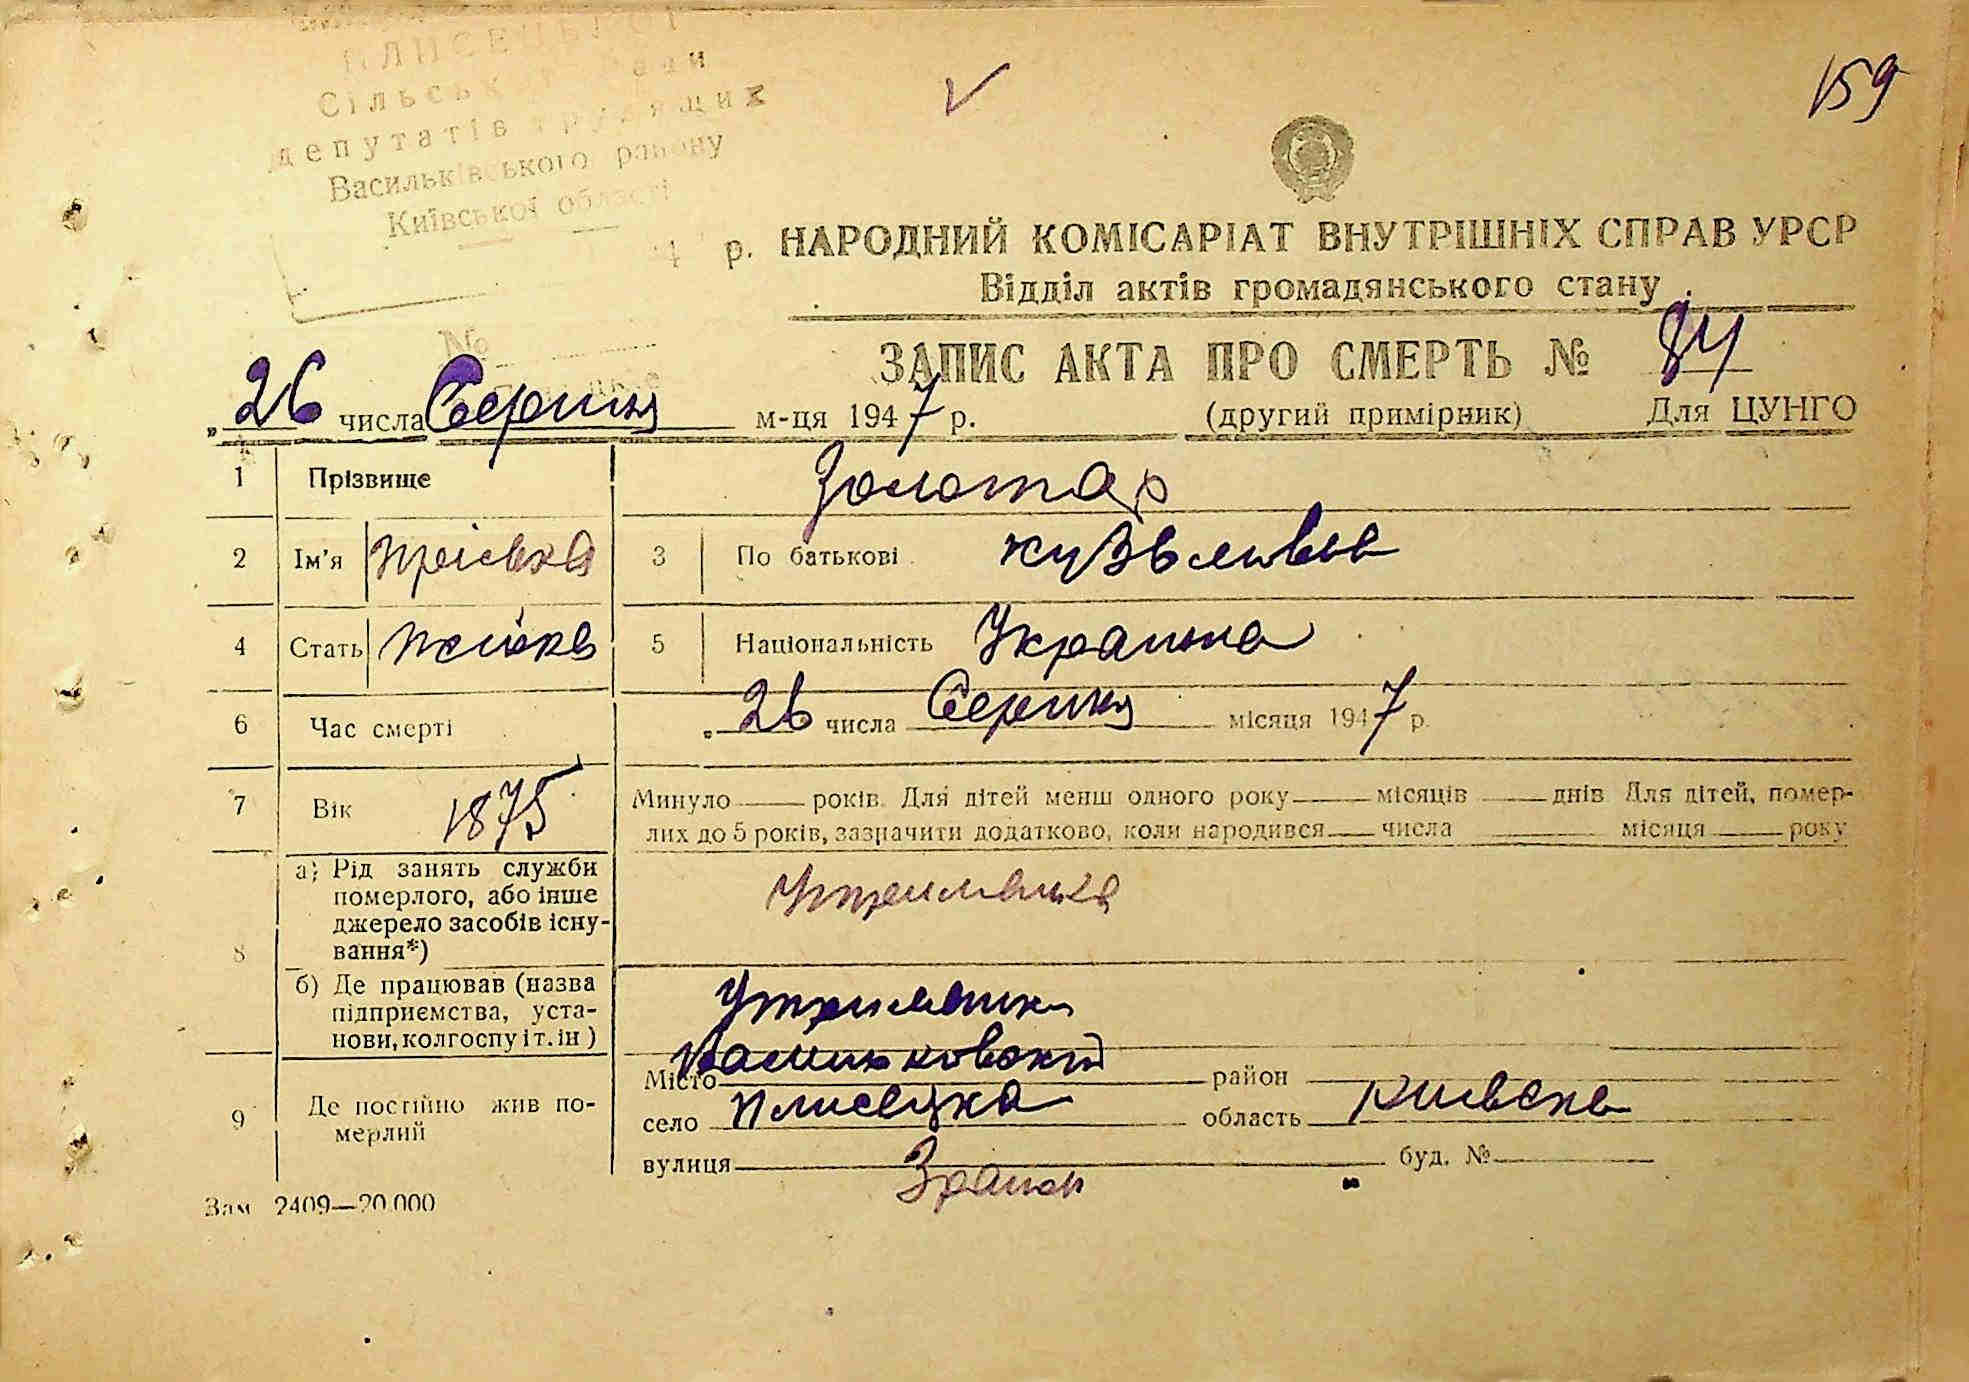 159
ПЛИСЕЦЬКОЇ
Сільської ради
депутатів трудящих
Васильківського району
Київської області
4 р.
№
НАРОДНИЙ КОМІСАРІАТ ВНУТРІШНІХ СПРАВ УРСР
Відділ актів громадянського стану
ЗАПИС АКТА ПРО СМЕРТЬ № 84
„26 числа Серпня м-ця 1947 р. (другий примірник) Для ЦУНГО
1 Прізвище Золотар
2 Ім'я 3 По батькові Кузьмивна
4 Стать 5 Національність Украинка
6 Час смерті „26 числа Серпня місяця 1947 р.
7 Вік 1875 Минуло років. Для дітей менш одного року місяців днів Для дітей, помер-
лих до 5 років, зазначити додатково, коли народився числа місяця року
8 а) Рід занять служби
померлого, або інше
джерело засобів існу-
вання*)
Утриманка
б) Де працював (назва
підприємства, уста-
нови, колгоспу і т. ін)
Утриманка
9 Де постійно жив по-
мерлий
Місто Васильковский район
село Плисецка область Киивска
вулиця буд. №
Зам 2409—20.000